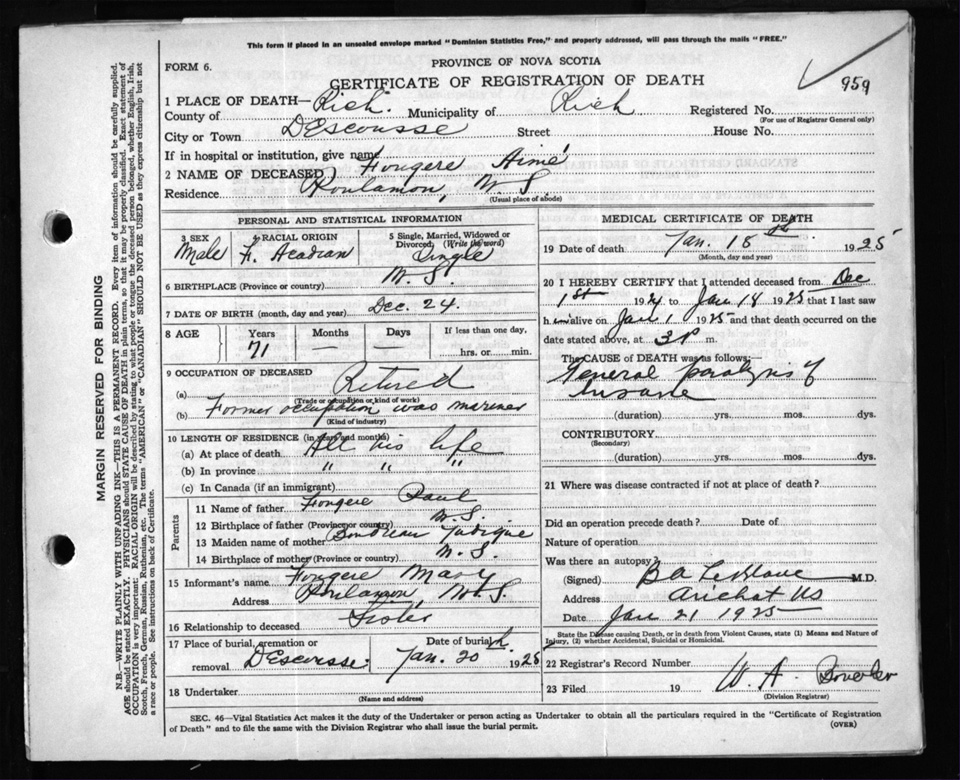 This form if placed in an unsealed envelope marked "Dominion Statistics Free," and properly addressed, will pass through the mails "FREE."
FORM 6.
PROVINCE OF NOVA SCOTIA
CERTIFICATE OF REGISTRATION OF DEATH
959
1 PLACE OF DEATH—
County of Rich. Municipality of Rich Registered No.
(For use of Registrar General only)
City or Town DEscousse Street House No.
If in hospital or institution, give name
2 NAME OF DECEASED Fougere Aimé
Residence Poulamon, N. S.
(Usual place of abode)
PERSONAL AND STATISTICAL INFORMATION
3 SEX Male
4 RACIAL ORIGIN Fr. Acadian
5 Single, Married, Widowed or Divorced (Write the word) Single
6 BIRTHPLACE (Province or country) N. S.
7 DATE OF BIRTH (month, day and year) Dec. 24.
8 AGE Years Months Days If less than one day,
71 — — hrs. or min.
9 OCCUPATION OF DECEASED
(a) Retired
(Trade or occupation or kind of work)
(b) Former occupation was mariner
(Kind of industry)
10 LENGTH OF RESIDENCE (in years and months)
(a) At place of death All his life
(b) In province " " "
(c) In Canada (if an immigrant)
Parents
11 Name of father Fougere Paul
12 Birthplace of father (Province or country) N. S.
13 Maiden name of mother
14 Birthplace of mother (Province or country) N. S.
15 Informant's name Fougere Mary
Address Poulamon, N. S.
16 Relationship to deceased Sister
17 Place of burial, cremation or removal DEscousse. Date of burial Jan. 20th 1925
18 Undertaker
(Name and address)
MEDICAL CERTIFICATE OF DEATH
19 Date of death Jan. 18th. 1925
(Month, day and year)
20 I HEREBY CERTIFY that I attended deceased from Dec
1st 1924 to Jan 18 1925 that I last saw
him alive on Jan 1 1925 and that death occurred on
date stated above, at 3 P m.
The CAUSE of DEATH was as follows:—
General paralysis of
Insane
(duration) yrs. mos. dys.
CONTRIBUTORY
(Secondary)
(duration) yrs. mos. dys.
21 Where was disease contracted if not at place of death?
Did an operation precede death? Date of
Nature of operation
Was there an autopsy?
(Signed) B A LeBlanc M.D.
Address Arichat NS
Date Jan 21 1925
State the Disease causing Death, or in death from Violent Causes, state (1) Means and Nature of
Injury, (2) whether Accidental, Suicidal or Homicidal.
22 Registrar's Record Number
23 Filed 19 W. A.
(Division Registrar)
SEC. 46—Vital Statistics Act makes it the duty of the Undertaker or person acting as Undertaker to obtain all the particulars required in the "Certificate of Registration
of Death" and to file the same with the Division Registrar who shall issue the burial permit. (OVER)
MARGIN RESERVED FOR BINDING
N.B.—WRITE PLAINLY WITH UNFADING INK—THIS IS A PERMANENT RECORD. Every item of information should be carefully supplied.
AGE should be stated EXACTLY. PHYSICIANS should STATE CAUSE OF DEATH in plain terms, so that it may be properly classified. Exact statement of
OCCUPATION is very important: RACIAL ORIGIN will be described by stating to what people or tongue the deceased person belonged, whether English, Irish,
Scotch, French, German, Russian, Ruthenian, etc. The terms "AMERICAN" or "CANADIAN" SHOULD NOT BE USED as they express citizenship but not
a race or people. See instructions on back of Certificate.